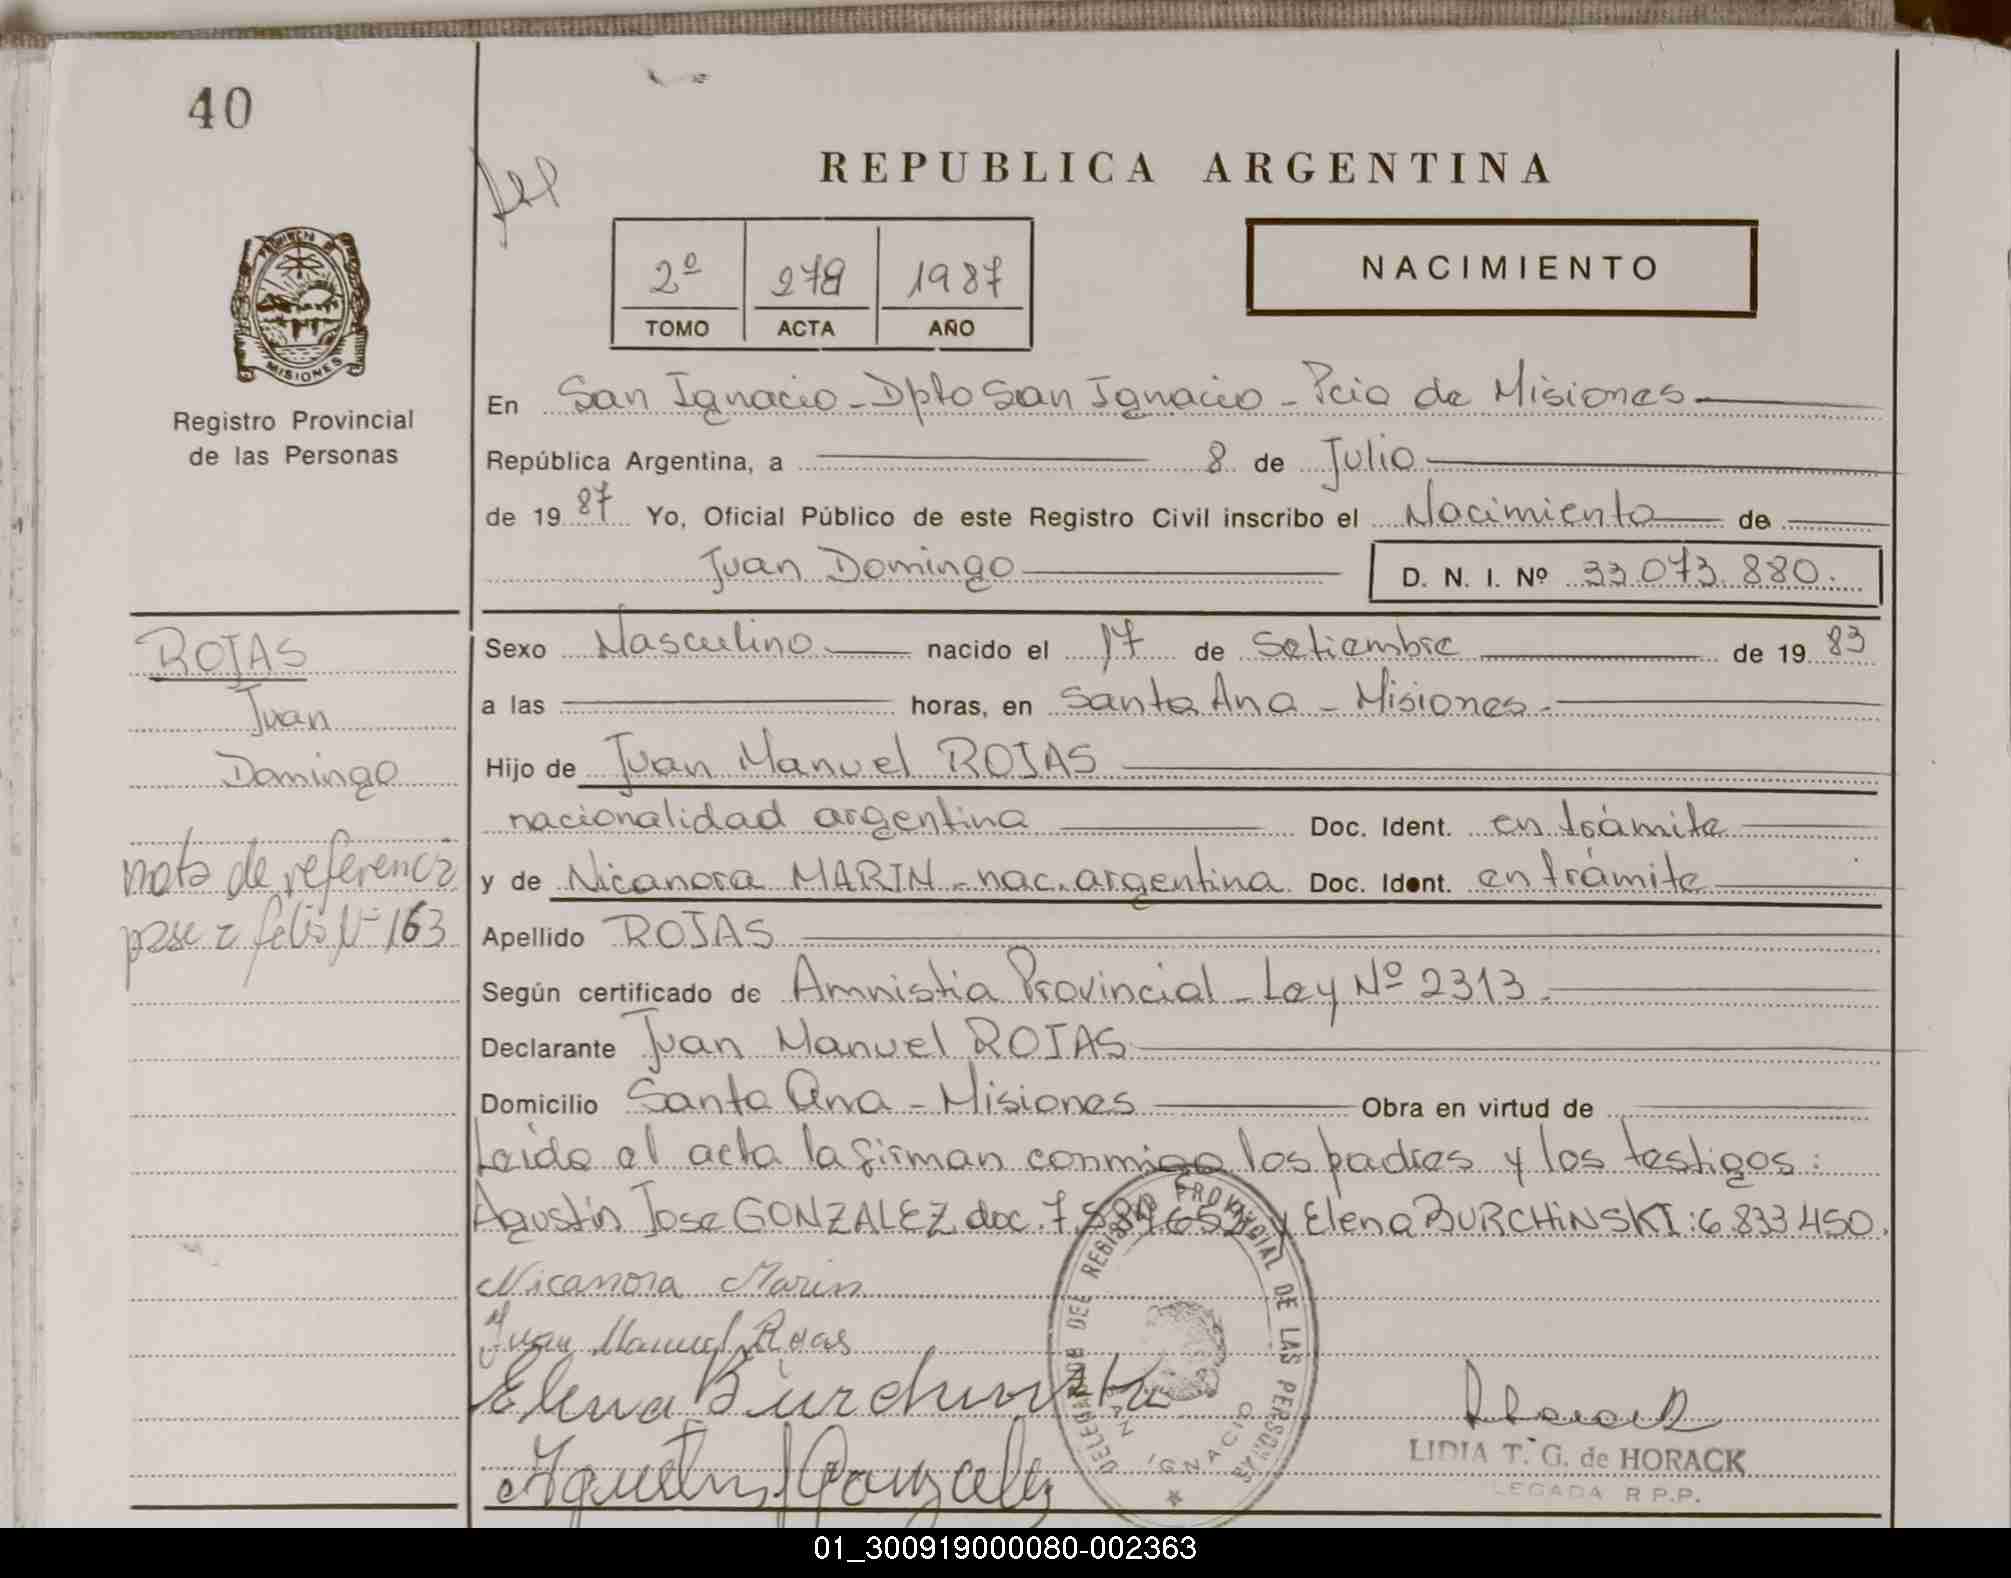 40
REPUBLICA ARGENTINA
PROVINCIA DE
MISIONES
Registro Provincial
de las Personas
2º 278 1987
TOMO ACTA AÑO
NACIMIENTO
En San Ignacio - Dpto San Ignacio - Pcia de Misiones
República Argentina, a 8 de Julio
de 19 87 Yo, Oficial Público de este Registro Civil inscribo el Nacimiento de
Juan Domingo D. N. I. Nº 33.073.880.
ROJAS
Juan
Domingo
nota de referencia
pase a folio Nº 163
Sexo Masculino nacido el 17 de Setiembre de 19 83
a las horas, en Santa Ana - Misiones.
Hijo de Juan Manuel ROJAS
nacionalidad argentina Doc. Ident. en trámite
y de Nicanora MARIN - nac. argentina. Doc. Ident. en trámite
Apellido ROJAS
Según certificado de Amnistia Provincial - Ley Nº 2313.
Declarante Juan Manuel ROJAS
Domicilio Santa Ana - Misiones Obra en virtud de
Leída el acta la firman conmigo los padres y los testigos:
Agustín Jose GONZALEZ doc. y Elena BURCHINSKI: 6.833.450.
Nicanora Marin
Juan Manuel Rojas
Elena Burchinski
Agustin J Gonzalez
DELEGACION DEL REGISTRO PROVINCIAL DE LAS PERSONAS
SAN IGNACIO
LIDIA T. G. de HORACK
DELEGADA R.P.P.
01_300919000080-002363